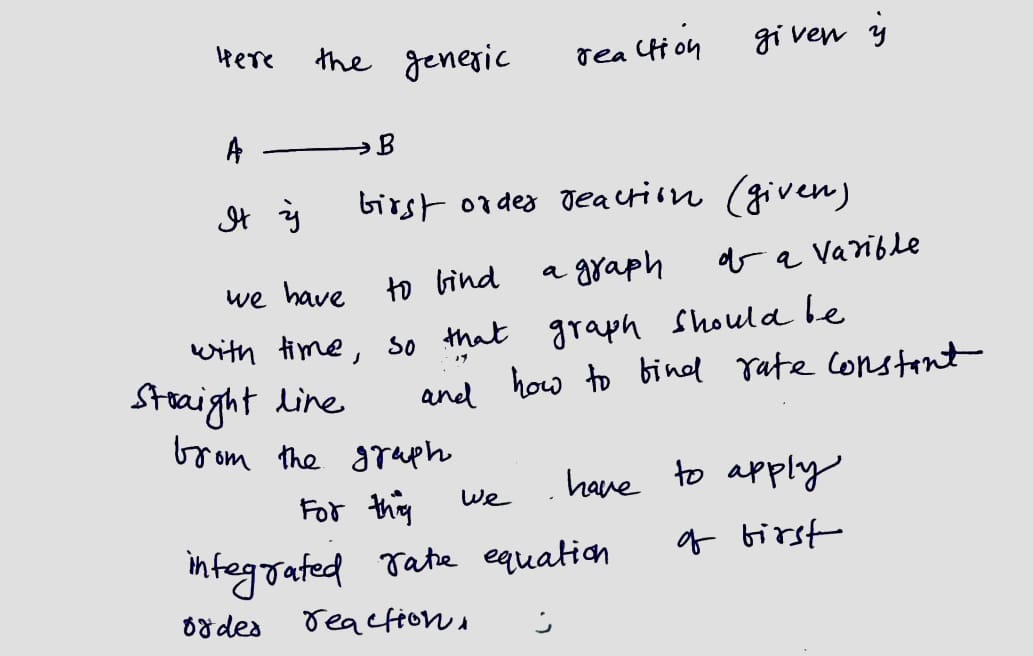 Here the generic reaction given is
A → B
It is first order reaction (given)
we have to find a graph of a varible
with time, so that graph should be
straight line and how to find rate constant
from the graph
For this we have to apply
integrated rate equation of first
order reaction.